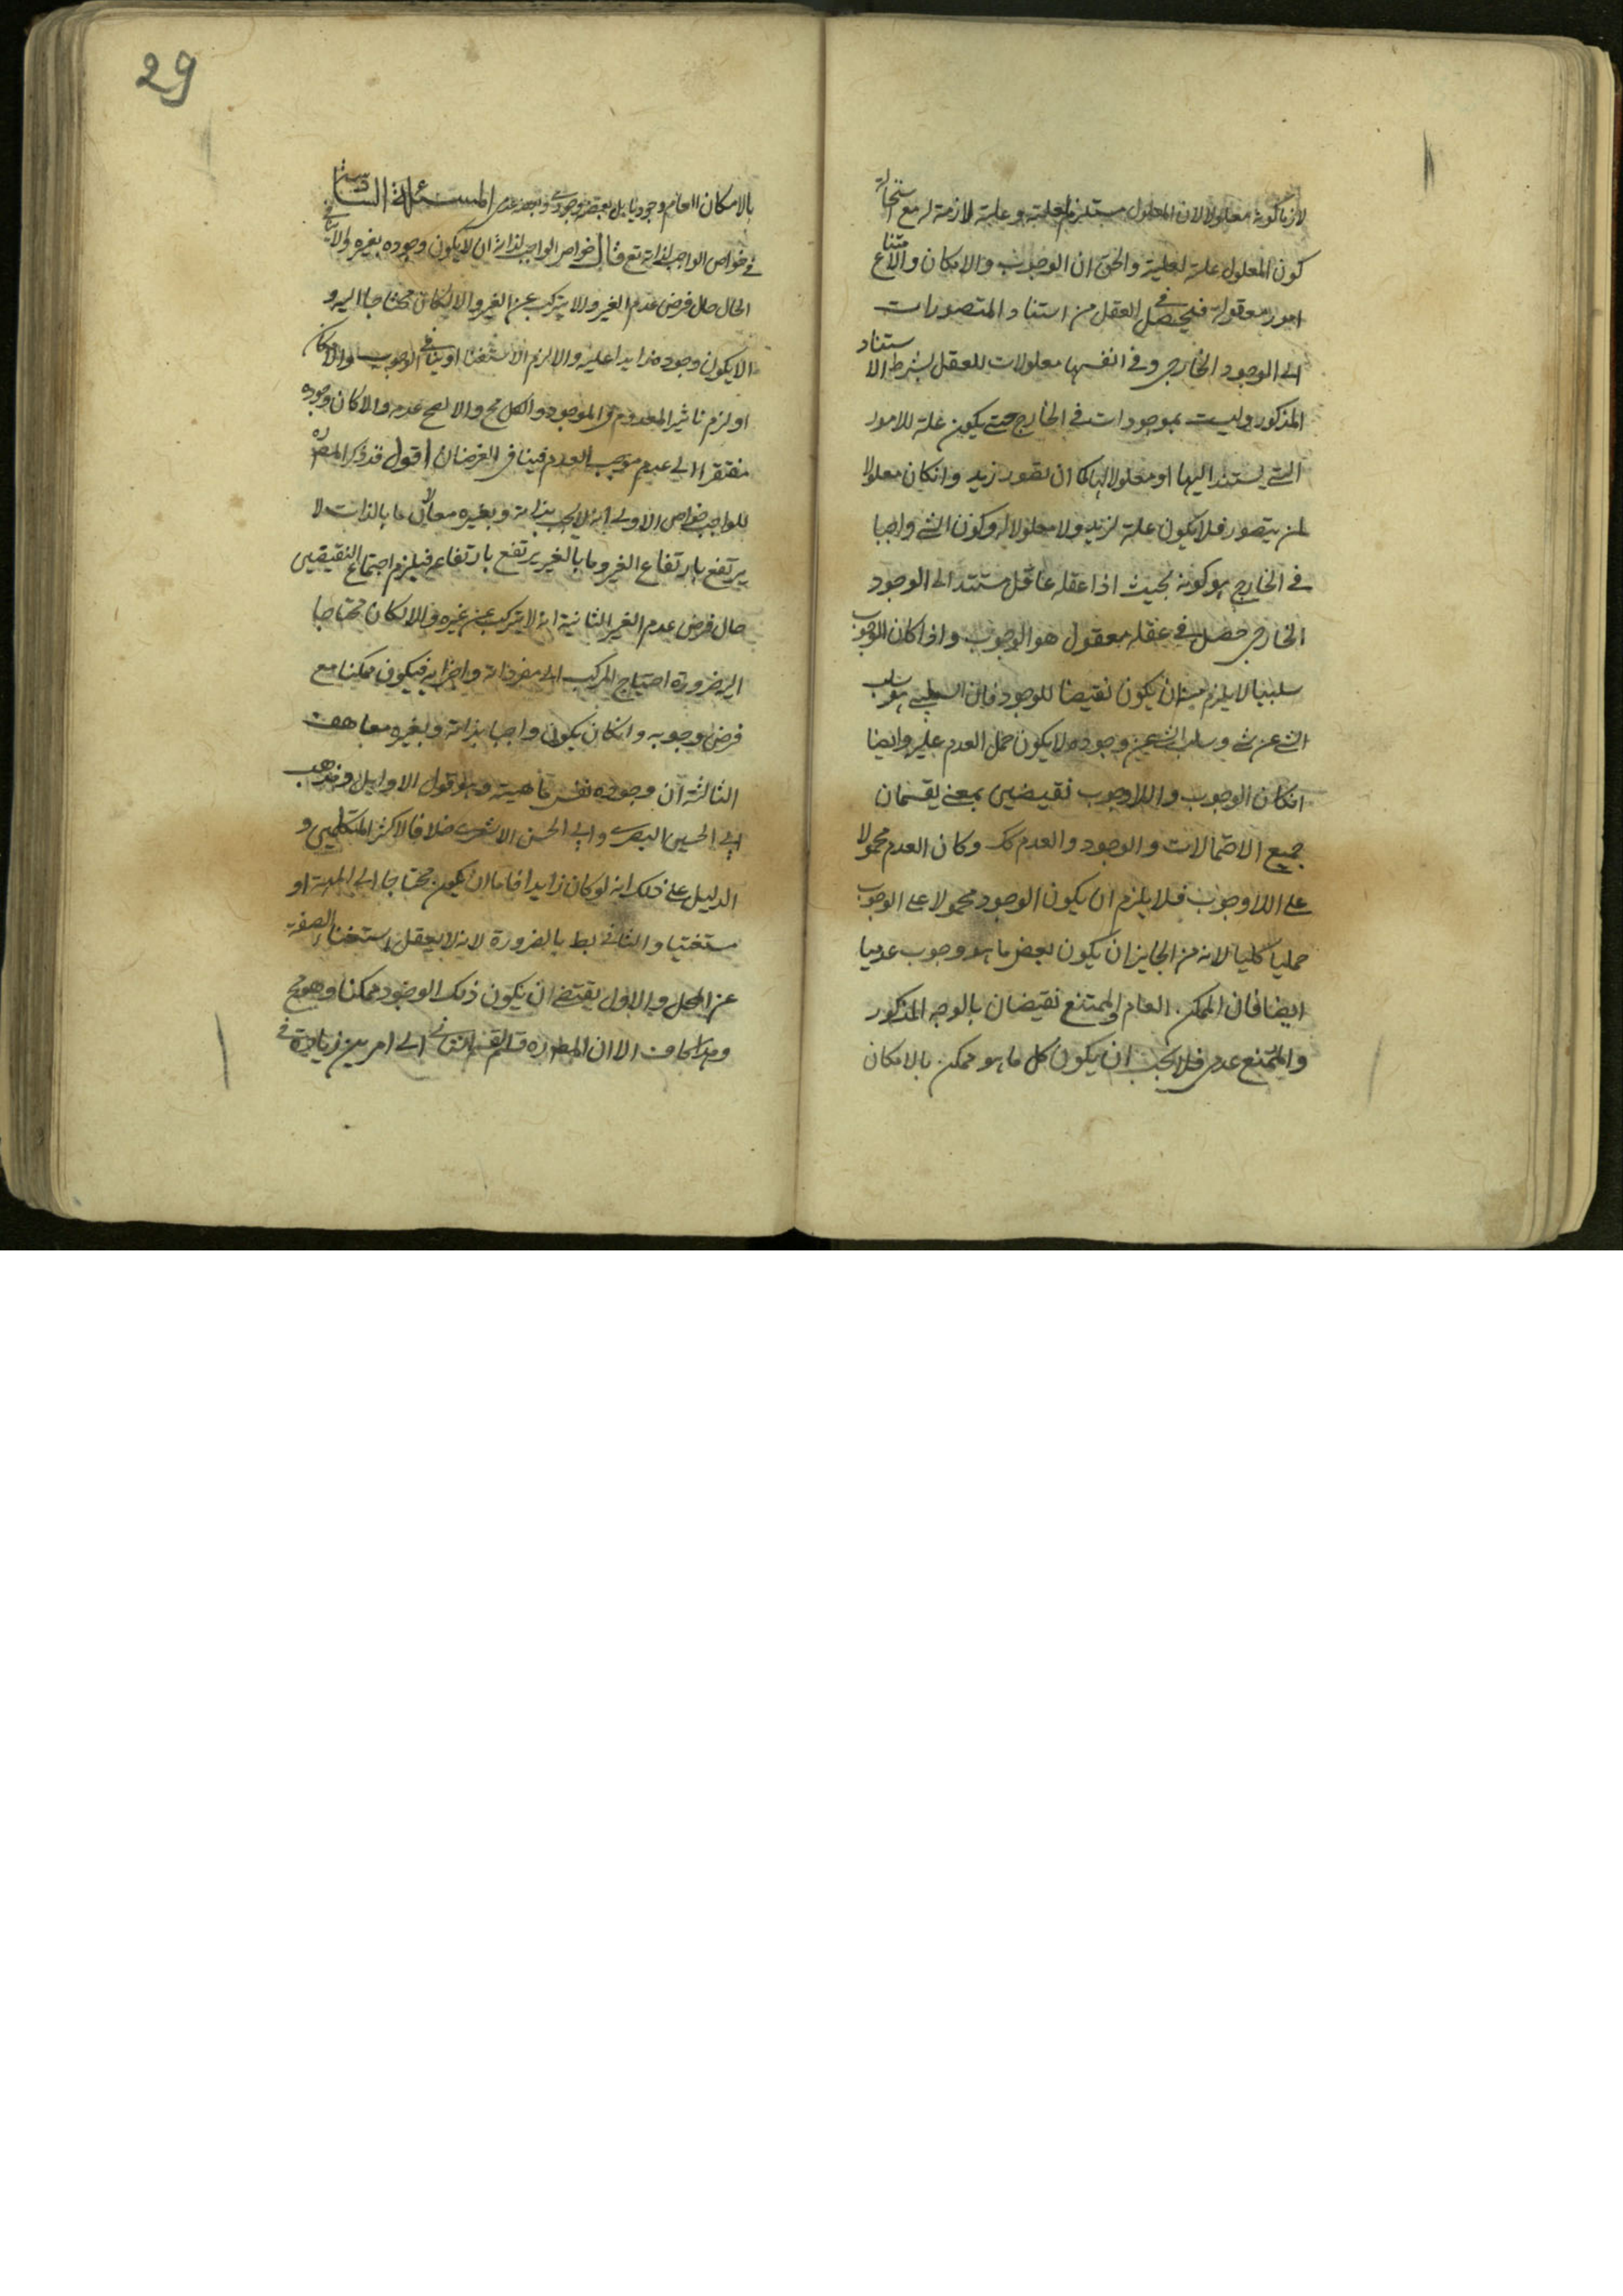 لازما كونه معلولا لان المعلول مستلزم لعلية وعلية لازمة له مع استحالة
كون المعلول علة لعلية والحق ان الوجوب والامكان والامتناع
امور معقولة فيحصل في العقل من استناد المتصورات
الى الوجود الخارجى وفى انفسها معلولات للعقل بشرط الاستناد
المذكور وليست بموجودات فى الخارج حتى يكون علة للامور
التى يستند اليها او معلولا لها كما ان تصور زيد وانكان معلولا
لمن يتصور فلا يكون علة لزيد ولا معلولا له وكون الشى واجبا
فى الخارج هو كونه بحيث اذا عقله عاقل مستند الى الوجود
الخارجى حصل فى عقله معقول هو الوجوب واذا كان الوجوب
سلبيا لا يلزم منه ان يكون نقيضا للوجود فان السلبى هو سلب
الشى عن شى وسلب الشى عن وجوده لا يكون حمل العدم عليه وايضا
انكان الوجوب واللاوجوب نقيضين بمعنى يقسمان
جميع الاحتمالات والوجود والعدم كك وكان العدم محمولا
على اللاوجوب فلا يلزم ان يكون الوجود محمولا على الوجوب
حمليا كليا لانه من الجايز ان يكون بعض ما هو وجوب عدميا
ايضا فان الممكن العام والممتنع نقيضان بالوجه المذكور
والممتنع عدمى فلا يجب ان يكون كل ما هو ممكن بالامكان
29
بالامكان العام وجوديا بل بعضه وجودى وبعضه عدمى المسئلة السادسة
فى خواص الواجب لذاته تع قال خواص الواجب لذاته ان لا يكون وجوده بغيره والا ينافى
الحال حال فرض عدم الغير ولا يتركب عن الغير والا لكان محتاجا اليه و
الا يكون وجوده زايدا عليه والا لزم الاستغنا او ينافى الوجوب والامكان
او لزم تاثير المعدوم فى الموجود والكل مح والا لصح عدمه والا كان وجوده
مفتقرا الى عدم موجب العدم فينافى الفرضان اقول قد ذكر المص ره
للواجب خواص الاولى انه لا يجب بذاته وبغيره معا لان ما بالذات لا
يرتفع بارتفاع الغير وما بالغير يرتفع بارتفاعه فيلزم اجتماع النقيضين
حال فرض عدم الغير الثانية انه لا يتركب عن غيره والا لكان محتاجا
اليه ضرورة احتياج المركب الى مفرداته واجزايه فيكون ممكنا مع
فرض وجوبه وانكان يكون واجبا بذاته وبغيره معا هف
الثالثة ان وجوده نفس ماهيته وهو قول الاوايل ومذهب
ابى الحسين البصرى وابى الحسن الاشعرى خلافا لاكثر المتكلمين و
الدليل على ذلك انه لو كان زايدا فاما ان يكون محتاجا الى المهية او
مستغنيا والثانى بط بالضرورة لانه لا يعقل استغنا الصفة
عن المحل والاول يقتضى ان يكون ذلك الوجود ممكنا وهو مح
وهذا كاف الا ان المص ره قسم القسم الثانى الى امرين زيادة فى